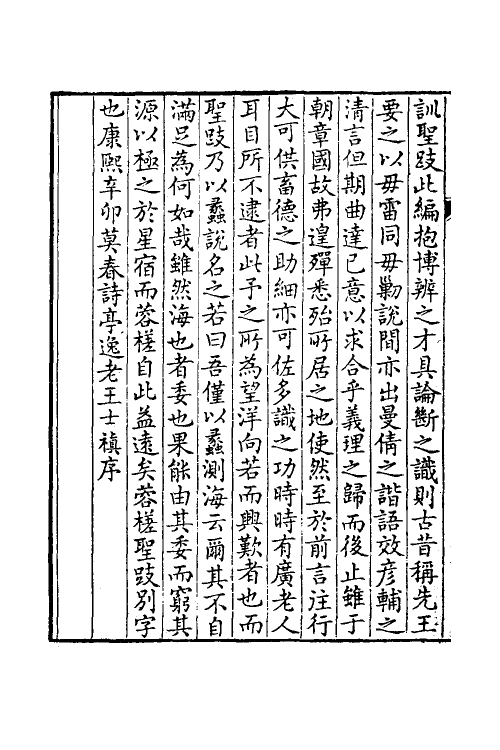 訓聖跂此編抱博辨之才具論斷之識則古昔稱先王
要之以毋雷同毋勦說間亦出曼倩之諧語效彦輔之
清言但期曲達已意以求合乎義理之歸而後止雖于
朝章國故弗遑殫悉殆所居之地使然至於前言往行
大可供畜德之助細亦可佐多識之功時時有廣老人
耳目所不逮者此予之所為望洋向若而興歎者也而
聖跂乃以蠡說名之若曰吾僅以蠡測海云爾其不自
滿足為何如哉雖然海也者委也果能由其委而窮其
源以極之於星宿而蓉槎自此益遠矣蓉槎聖跂别字
也康熙辛卯莫春詩亭逸老王士禛序